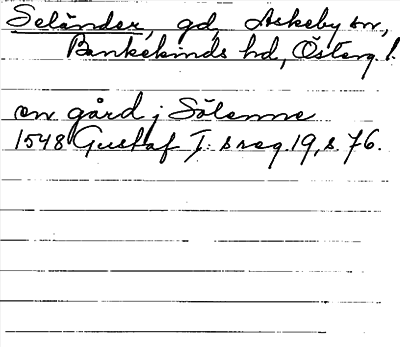 Seländer, gd, Askeby sn,
Bankekinds hd, Österg.l.
en gård j Sölenne
1548 Gustaf I:s reg. 19, s. 76.